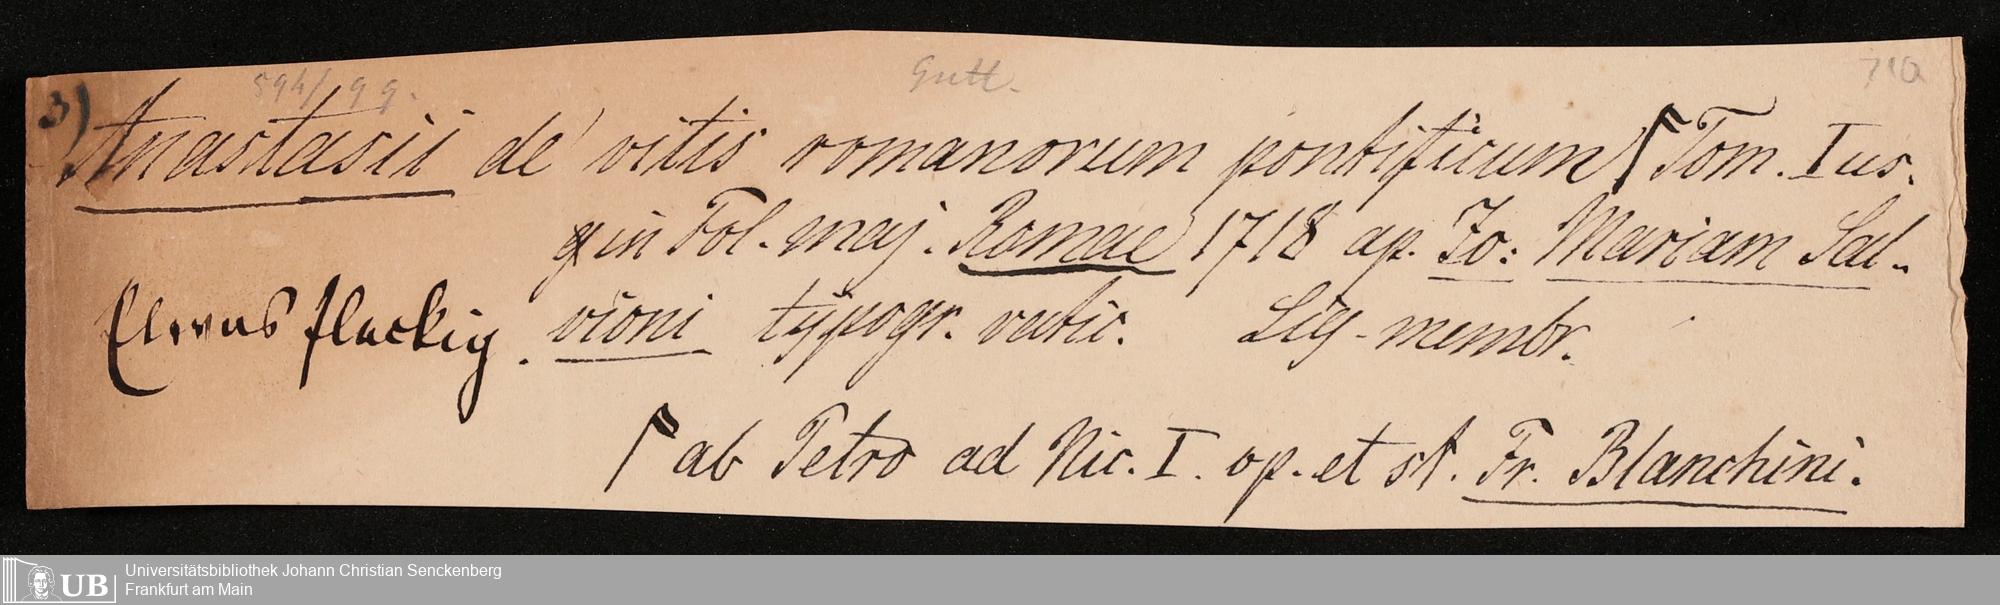 594/99. Gutt. 710
3) Anastasii de vitis romanorum pontificum Γ Tom. I us.
in Fol. maj. Romae 1718 ap. Jo: Mariam Sal-
Etwas fleckig. vioni typogr. vatic. Lig-membr.
Γ ab Petro ad Nic. I. op. et st. Fr. Blanchini.
UB Universitätsbibliothek Johann Christian Senckenberg
Frankfurt am Main